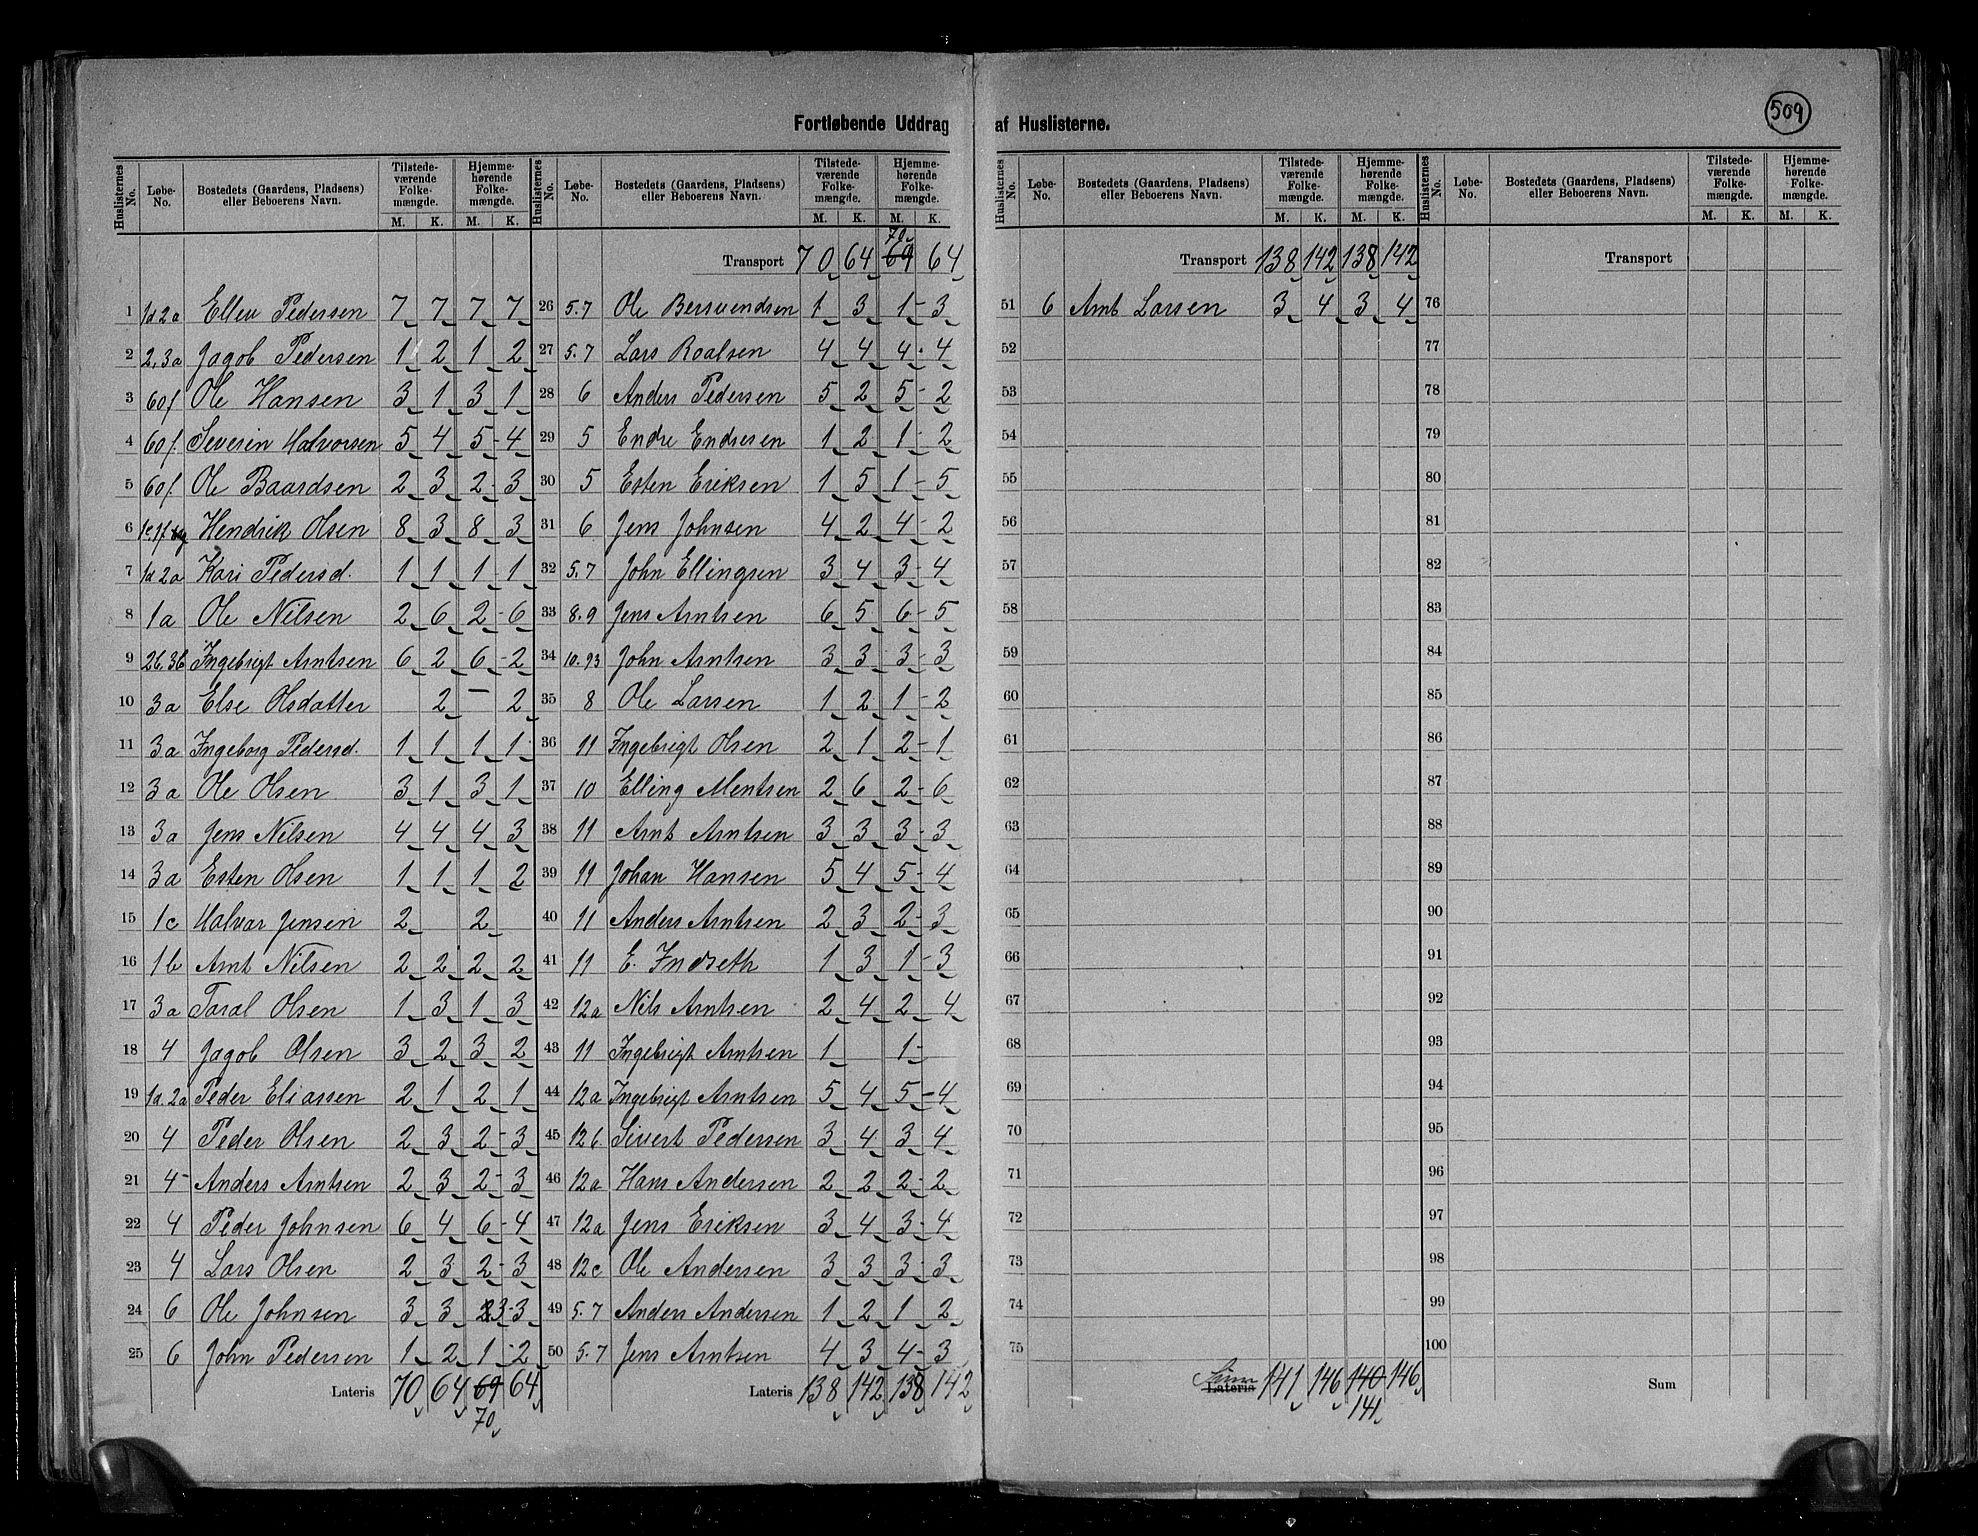 509
Fortløbende Uddrag af Huslisterne.
Huslisternes No. Løbe-No. Bostedets (Gaardens, Pladsens) eller Beboerens Navn. Tilstedeværende Folkemængde. M. K. Hjemmehørende Folkemængde. M. K.
1 1d 2a Ellev Pedersen 7 7 7 7
2 2,3a Jagob Pedersen 1 2 1 2
3 60f Ole Hansen 3 1 3 1
4 60f. Severin Halvorsen 5 4 5-4
5 60f. Ole Baardsen 2 3 2-3
6 Hendrik Olsen 8 3 8 3
7 1d 2a Kari Pedersd. 1 1 1-1
8 1a Ole Nilsen 2 6 2-6
9 2b.3b Ingebrigt Arntsen 6 2 6-2
10 3a Else Olsdatter 2 — 2
11 3a Ingeborg Pedersd. 1 1 1 1
12 3a Ole Olsen 3 1 3 1
13 3a Jens Nilsen 4 4 4 3
14 3a Esten Olsen 1 1 1 2
15 1c Halvar Jensen 2 2
16 1b Arnt Nilsen 2 2 2 2
17 3a Taral Olsen 1 3 1 3
18 4 Jagob Olsen 3 2 3 2
19 1d.2a Peder Eliassen 2 1 2 1
20 4 Peder Olsen 2 3 2-3
21 4 Anders Arntsen 2 3 2-3
22 4 Peder Johnsen 6 4 6-4
23 4 Lars Olsen 2 3 2-3
24 6 Ole Johnsen 3 3 2 3-3
25 6 John Pedersen 1 2 1-2
Lateris 70 64 69 64
70
Huslisternes No. Løbe-No. Bostedets (Gaardens, Pladsens) eller Beboerens Navn. Tilstedeværende Folkemængde. M. K. Hjemmehørende Folkemængde. M. K.
70
Transport 70 64 69 64
26 5.7 Ole Bersvendsen 1 3 1-3
27 5.7 Lars Roalsen 4 4 4-4
28 6 Anders Pedersen 5 2 5-2
29 5 Endre Endresen 1 2 1-2
30 5 Esten Eriksen 1 5 1-5
31 6 Jens Johnsen 4 2 4-2
32 5.7 John Ellingsen 3 4 3-4
33 8.9 Jens Arntsen 6 5 6-5
34 10.93 John Arntsen 3 3 3-3
35 8 Ole Larsen 1 2 1-2
36 11 Ingebrigt Olsen 2 1 2-1
37 10 Elling Mentsen 2 6 2-6
38 11 Arnt Arntsen 3 3 3-3
39 11 Johan Hansen 5 4 5-4
40 11 Anders Arntsen 2 3 2-3
41 11 E. Indseth 1 3 1-3
42 12a Nils Arntsen 2 4 2 4
43 11 Ingebrigt Arntsen 1 1-
44 12a Ingebrigt Arntsen 5 4 5-4
45 12b Sivert Pedersen 3 4 3 4
46 12a Hans Andersen 2 2 2-2
47 12a Jens Eriksen 3 4 3-4
48 12c Ole Andersen 3 3 3-3
49 5.7 Anders Andersen 1 2 1 2
50 5.7 Jens Arntsen 4 3 4-3
Lateris 138 142 138 142
Huslisternes No. Løbe-No. Bostedets (Gaardens, Pladsens) eller Beboerens Navn. Tilstedeværende Folkemængde. M. K. Hjemmehørende Folkemængde. M. K.
Transport 138 142 138 142
51 6 Arnt Larsen 3 4 3 4
52
53
54
55
56
57
58
59
60
61
62
63
64
65
66
67
68
69
70
71
72
73
74
75
Sum
Lateris 141 146 140 146
141
Huslisternes No. Løbe-No. Bostedets (Gaardens, Pladsens) eller Beboerens Navn. Tilstedeværende Folkemængde. M. K. Hjemmehørende Folkemængde. M. K.
Transport
76
77
78
79
80
81
82
83
84
85
86
87
88
89
90
91
92
93
94
95
96
97
98
99
100
Sum